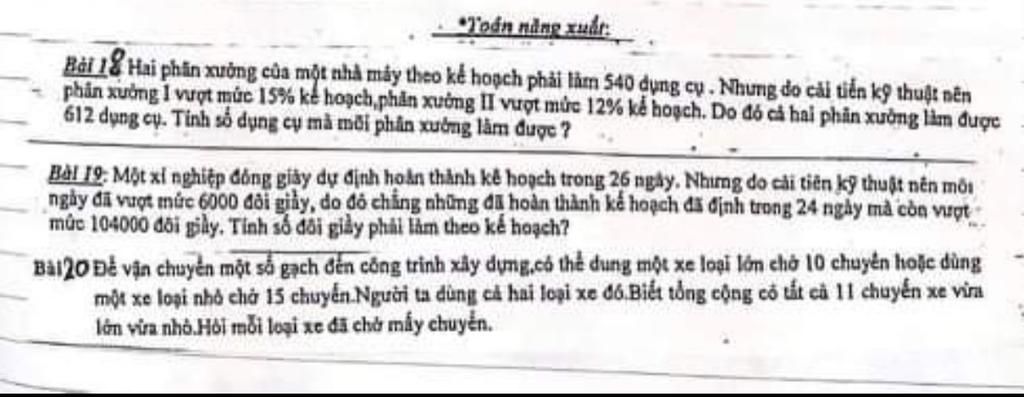 *Toán năng xuất:
Bài 18 Hai phân xưởng của một nhà máy theo kế hoạch phải làm 540 dụng cụ . Nhưng do cải tiến kỹ thuật nên
phân xưởng I vượt mức 15% kế hoạch,phân xưởng II vượt mức 12% kế hoạch. Do đó cả hai phân xưởng làm được
612 dụng cụ. Tính số dụng cụ mà mỗi phân xưởng làm được ?
Bài 19: Một xí nghiệp đóng giày dự định hoàn thành kế hoạch trong 26 ngày. Nhưng do cải tiên kỹ thuật nên mỗi
ngày đã vượt mức 6000 đôi giầy, do đó chẳng những đã hoàn thành kế hoạch đã định trong 24 ngày mà còn vượt
mức 104000 đôi giầy. Tính số đôi giầy phải làm theo kế hoạch?
Bài20 Để vận chuyển một số gạch đến công trình xây dựng,có thể dung một xe loại lớn chở 10 chuyến hoặc dùng
một xe loại nhỏ chở 15 chuyến.Người ta dùng cả hai loại xe đó.Biết tổng cộng có tất cả 11 chuyến xe vừa
lớn vừa nhỏ.Hỏi mỗi loại xe đã chở mấy chuyến.